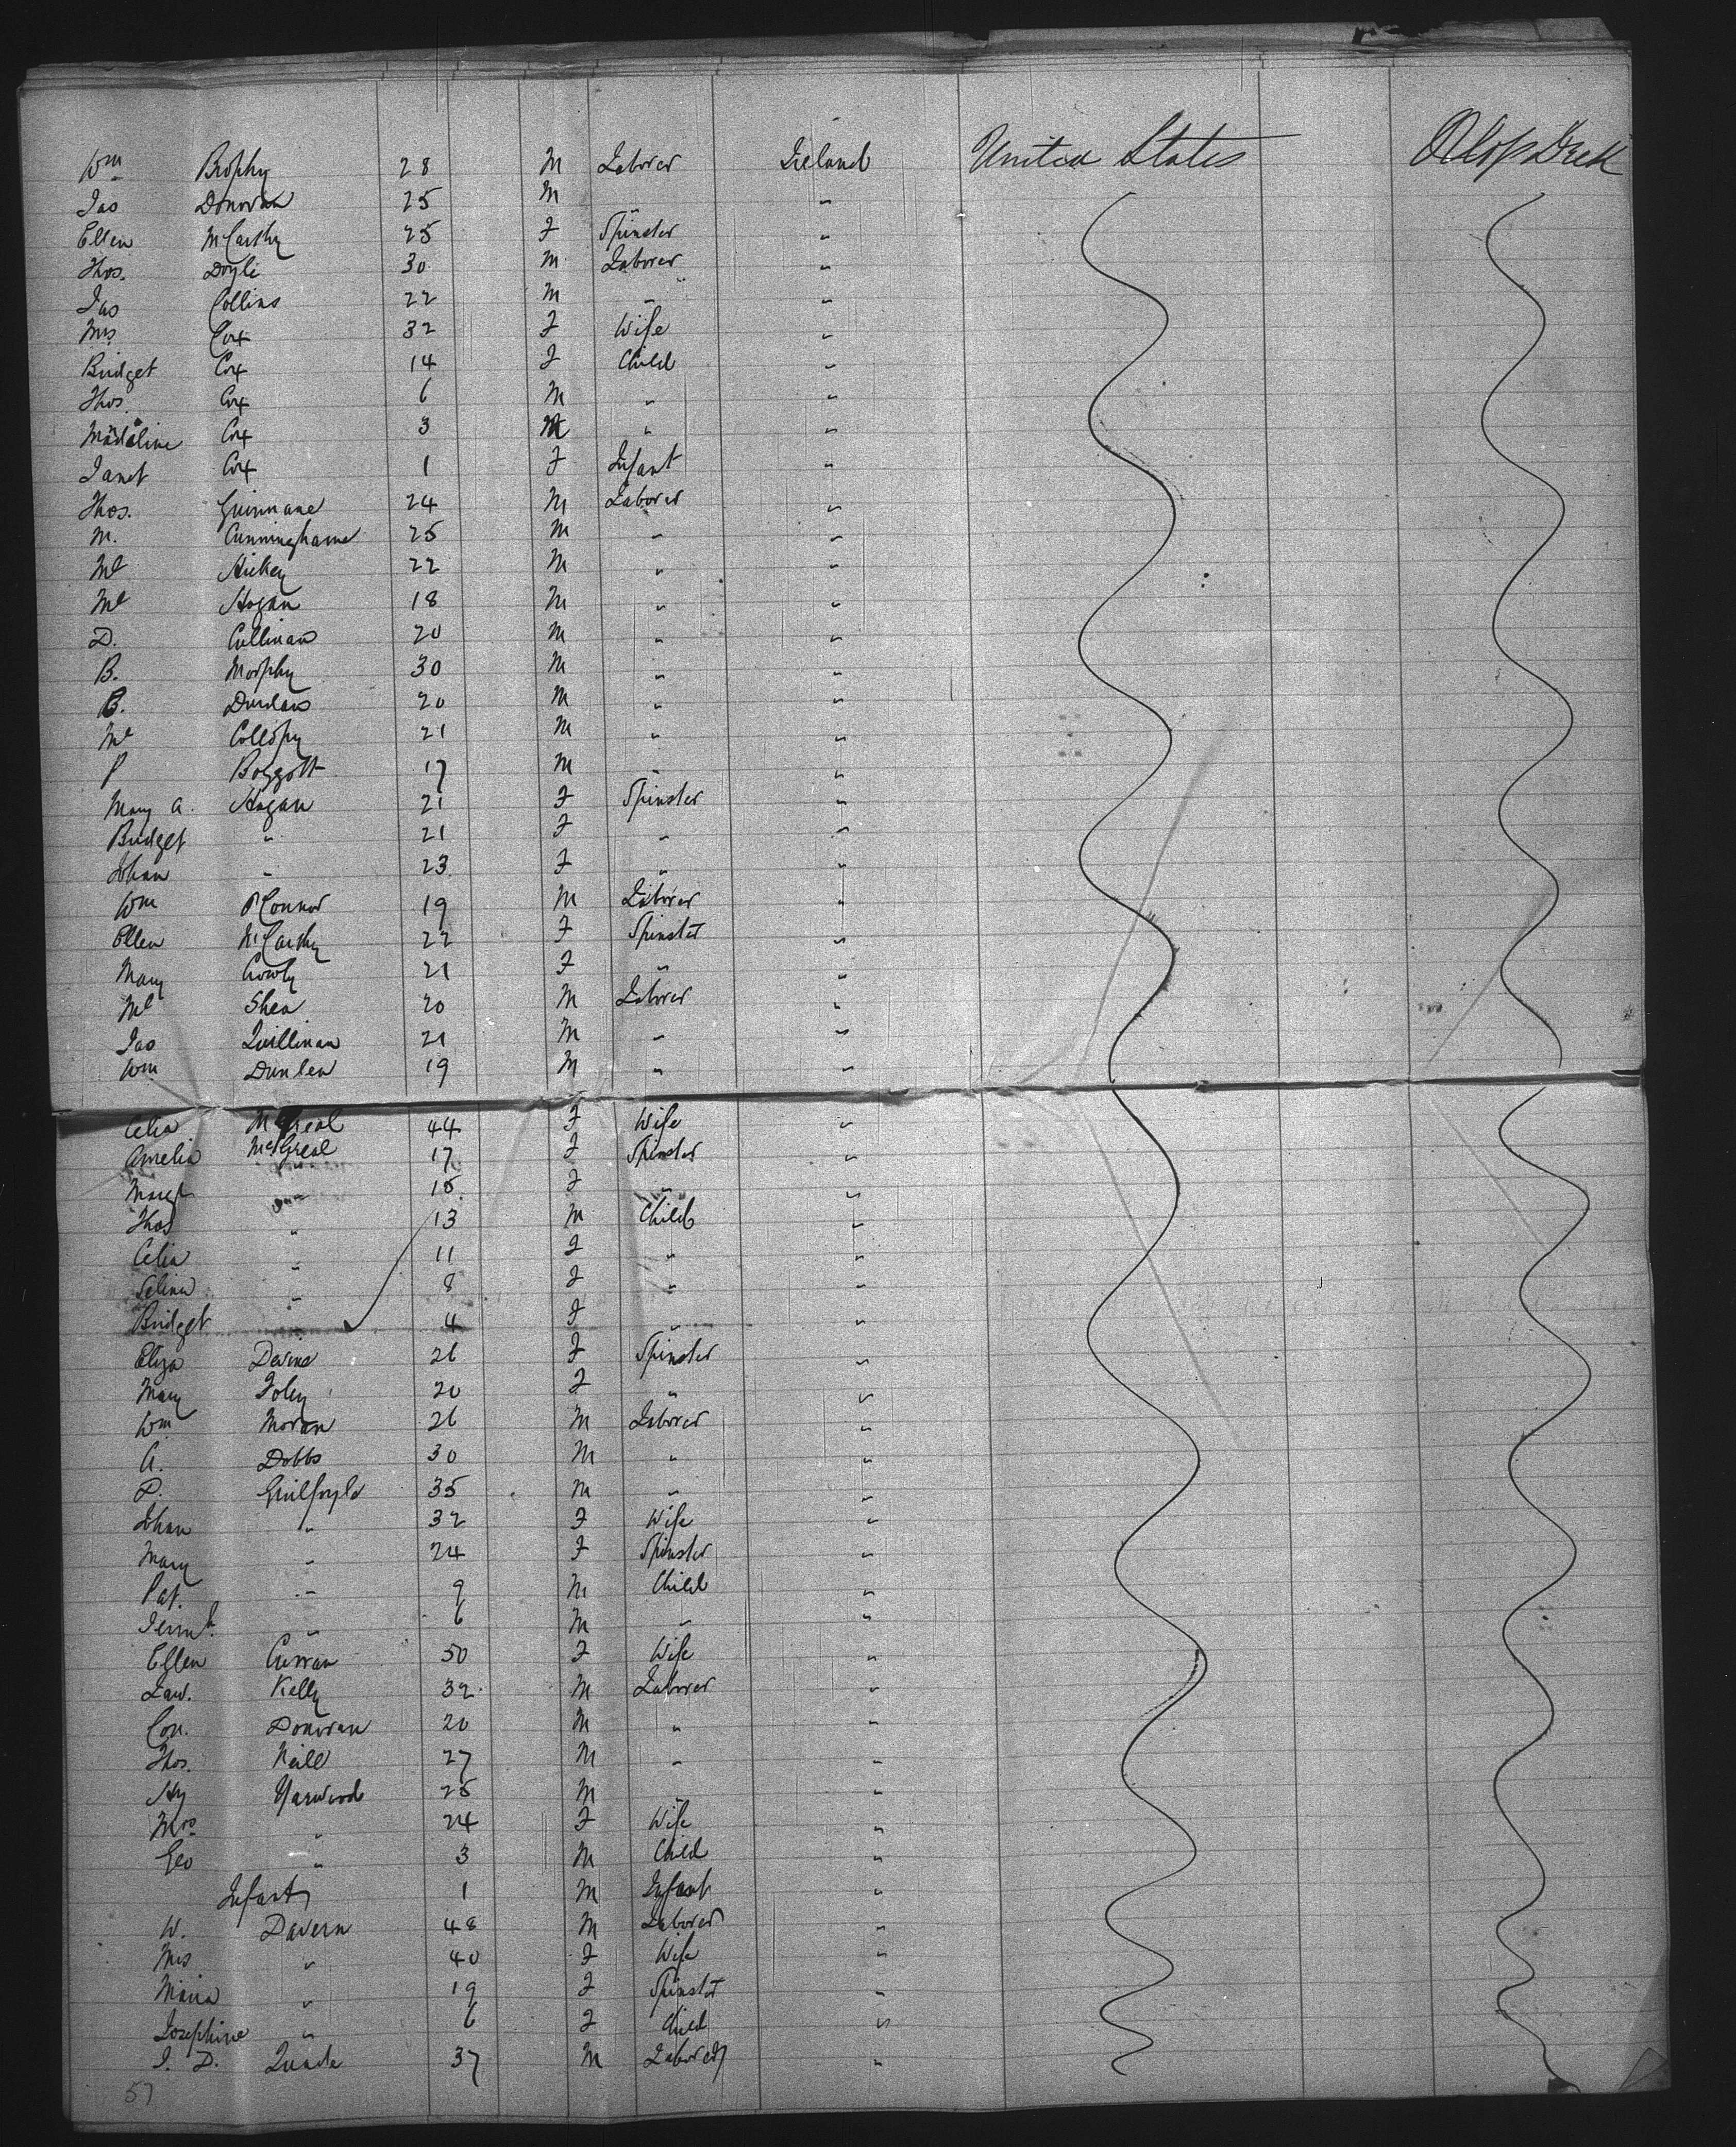 Wm Brophy 28 M Laborer Ireland United States
Jas Donovan 25 M " "
Ellen McCarthy 25 F Spinster "
Thos. Doyle 30 M Laborer "
Jas Collins 22 M " "
Mrs Cox 32 F Wife "
Bridget Cox 14 F Child "
Thos. Cox 6 M " "
Madaline Cox 3 M " "
Janet Cox 1 F Infant "
Thos. Guinnane 24 M Laborer "
M. Cunninghame 25 M " "
Ml Hickey 22 M " "
Ml Hogan 18 M " "
D. Cullinan 20 M " "
B. Morphy 30 M " "
B. 20 M " "
Ml Collopy 21 M " "
P Boggott 17 M " "
Mary A. Hogan 21 F Spinster "
Bridget " 21 F " "
Johan " 23 F " "
Wm O'Connor 19 M Laborer "
Ellen McCarthy 22 F Spinster "
Mary Crowly 21 F " "
Ml Shea 20 M Laborer "
Jas Quillinan 21 M " "
Wm Dunlea 19 M " "
Celia McGreal 44 F Wife "
Amelia McGreal 17 F Spinster "
Margt " 15 F " "
Thos " 13 M Child "
Celia " 11 F " "
Selina " 8 F " "
Bridget " 4 F " "
Eliza Devine 26 F Spinster "
Mary Foley 20 F " "
Wm Moran 26 M Laborer "
A. Dobbs 30 M " "
P. Guilfoyle 35 M " "
Johan " 32 F Wife "
Mary " 24 F Spinster "
Pat. " 9 M Child "
Jermh. " 6 M " "
Ellen Curran 50 F Wife "
Law. Kelly 32 M Laborer "
Con. Donovan 20 M " "
Thos. Neill 27 M " "
Hy Yarwood 25 M " "
Mrs " 24 F Wife "
Geo " 3 M Child "
Infant 1 M Infant "
W. Davern 48 M Laborer "
Mrs " 40 F Wife "
Maria " 19 F Spinster "
Josephine " 6 F Child "
J. D. Quade 37 M Laborer "
57